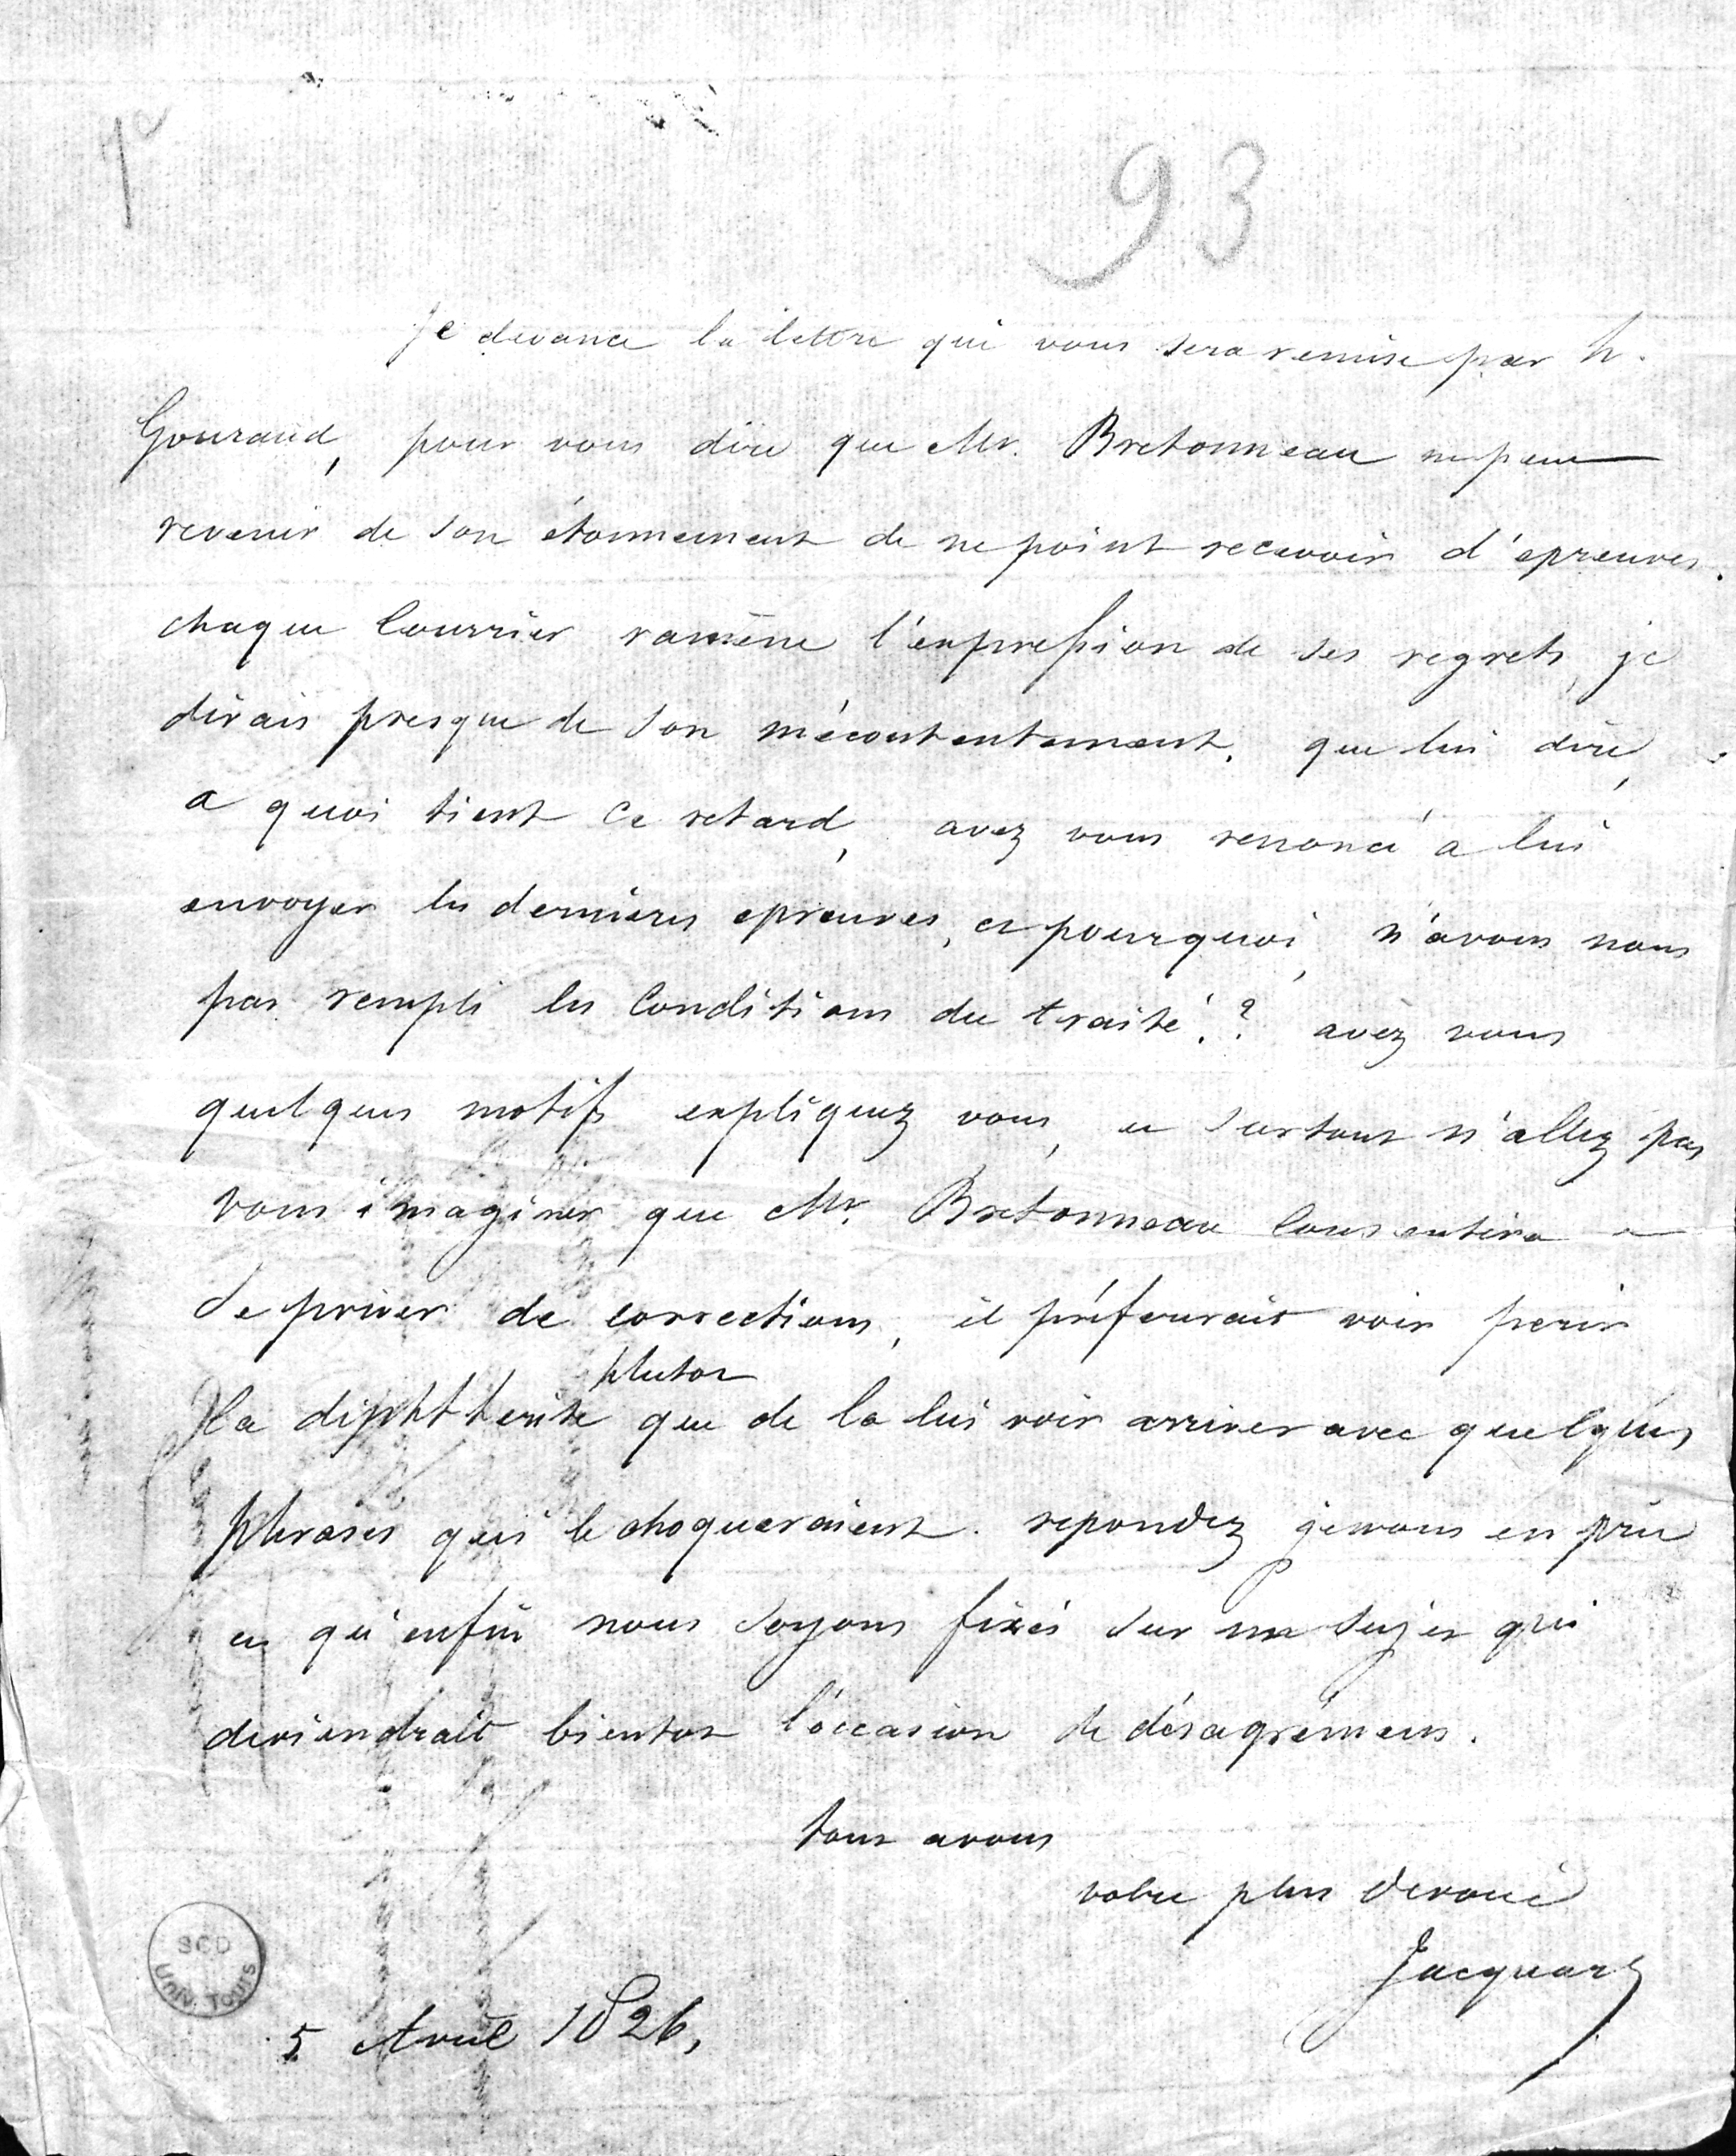 93
Je devance la lettre qui vous sera remise par h.
Gouraud, pour vous dire que Mr. Bretonneau ne peut
revenir de son étonnement de ne point recevoir d'epreuves.
chaque Courrier ramène l'expression de ses regrets, je
dirais presque de son mécontentement. que lui dire,
a quoi tient ce retard, avez vous renoncé a lui
envoyer les dernieres epreuves, et pourquoi, n'avons nous
pas rempli les Conditions du traité.? avez vous
quelques motifs expliquez vous, et surtout n'allez pas
vous imaginer que Mr. Bretonneau Consentira a
se priver de corrections, il préfererait voir perir
plutot
la diphtherite que de la lui voir arriver avec quelques
phrases qui le choqueraient. repondez je vous en prie
et qu'enfin nous soyons fixés sur un sujet qui
deviendrait bientot l'occasion de désagrémens.
tout avous
votre plus devoué
Jacquart
SCD
Univ. Tours
5 Avril 1826,